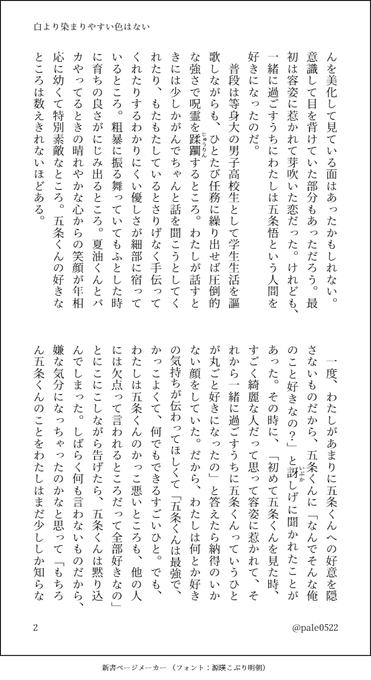 白より染まりやすい色はない
んを美化して見ている面はあったかもしれない。
意識して目を背けていた部分もあっただろう。最
初は容姿に惹かれて芽吹いた恋だった。けれども、
一緒に過ごすうちにわたしは五条悟という人間を
好きになったのだ。
普段は等身大の男子高校生として学生生活を謳
歌しながらも、ひとたび任務に繰り出せば圧倒的
な強さで呪霊を蹂躙するところ。わたしが話すと
きには少しかがんでちゃんと話を聞こうとしてく
れたり、もたもたしているとさりげなく手伝って
くれたりするわかりにくい優しさが細部に宿って
いるところ。粗暴に振る舞っていてもふとした時
に育ちの良さがにじみ出るところ。夏油くんとバ
カやってるときの晴れやかな心からの笑顔が年相
応に幼くて特別素敵なところ。五条くんの好きな
ところは数えきれないほどある。
一度、わたしがあまりに五条くんへの好意を隠
さないものだから、五条くんに「なんでそんな俺
のこと好きなの？」と訝しげに聞かれたことが
あった。その時に、「初めて五条くんを見た時、
すごく綺麗な人だって思って容姿に惹かれて、そ
れから一緒に過ごすうちに五条くんっていうひと
が丸ごと好きになったの」と答えたら納得のいか
ない顔をしていた。だから、わたしは何とか好き
の気持ちが伝わってほしくて「五条くんは最強で、
かっこよくて、何でもできるすごいひと。でも、
わたしは五条くんのかっこ悪いところも、他の人
には欠点って言われるところだって全部好きなの」
とにこにこしながら告げたら、五条くんは黙り込
んでしまった。しばらく何も言わないものだから、
嫌な気分になっちゃったのかなと思って「もちろ
ん五条くんのことをわたしはまだ少ししか知らな
2
@pale0522
新書ページメーカー（フォント：源暎こぶり明朝）